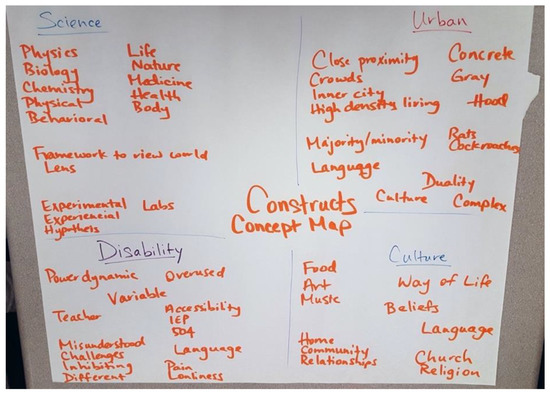 Science
Physics
Biology
Chemistry
Physical
Behavioral
Life
Nature
Medicine
Health
Body
Framework to view world
Lens
Experimental
Experiencial
Hypotheis
Labs
Urban
Close proximity
Crowds
Inner city
High density living
Concrete
Gray
Hood
Majority/minority
Language
Rats
Cockroaches
Duality
Culture
Complex
Constructs
Concept Map
Disability
Power dynamic
Overused
Variable
Teacher
Accessibility
IEP
504
Misunderstood
Challenges
Inhibiting
Different
Language
Pain
Lonliness
Culture
Food
Art
Music
Way of Life
Beliefs
Language
Home
Community
Relationships
Church
Religion